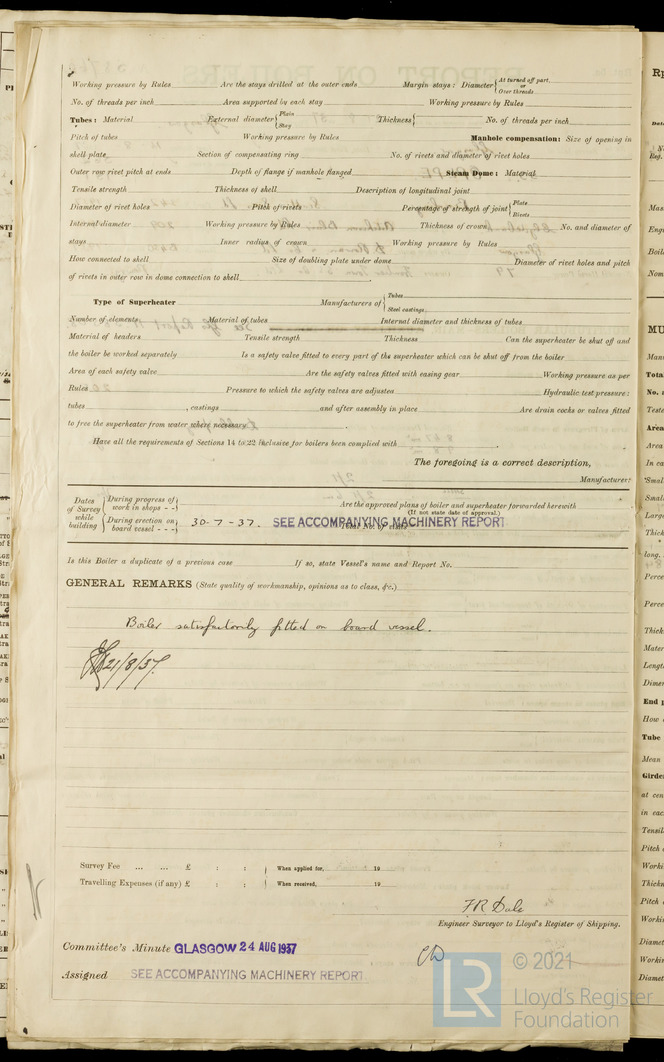 Working pressure by Rules Are the stays drilled at the outer ends Margin stays: Diameter { At turned off part, or Over threads
No. of threads per inch Area supported by each stay Working pressure by Rules
Tubes: Material External diameter { Plain Stay Thickness { No. of threads per inch
Pitch of tubes Working pressure by Rules Manhole compensation: Size of opening in
shell plate Section of compensating ring No. of rivets and diameter of rivet holes
Outer row rivet pitch at ends Depth of flange if manhole flanged Steam Dome: Material
Tensile strength Thickness of shell Description of longitudinal joint
Diameter of rivet holes Pitch of rivets Percentage of strength of joint { Plate Rivets
Internal diameter Working pressure by Rules Thickness of crown No. and diameter of
stays Inner radius of crown Working pressure by Rules
How connected to shell Size of doubling plate under dome Diameter of rivet holes and pitch
of rivets in outer row in dome connection to shell
Type of Superheater Manufacturers of { Tubes Steel castings
Number of elements Material of tubes Internal diameter and thickness of tubes
Material of headers Tensile strength Thickness Can the superheater be shut off and
the boiler be worked separately Is a safety valve fitted to every part of the superheater which can be shut off from the boiler
Area of each safety valve Are the safety valves fitted with easing gear Working pressure as per
Rules Pressure to which the safety valves are adjusted Hydraulic test pressure:
tubes , castings and after assembly in place Are drain cocks or valves fitted
to free the superheater from water where necessary
Have all the requirements of Sections 14 to 22 inclusive for boilers been complied with
The foregoing is a correct description,
Manufacturer.
Dates of Survey while building { During progress of work in shops - - } Are the approved plans of boiler and superheater forwarded herewith (If not state date of approval.)
{ During erection on board vessel - - - } 30-7-37. SEE ACCOMPANYING MACHINERY REPORT
Is this Boiler a duplicate of a previous case If so, state Vessel's name and Report No.
GENERAL REMARKS (State quality of workmanship, opinions as to class, &c.)
Boiler satisfactorily fitted on board vessel.
21/8/37.
Survey Fee ... ... £ : : When applied for, 19
Travelling Expenses (if any) £ : : When received, 19
F R Dale
Engineer Surveyor to Lloyd's Register of Shipping.
Committee's Minute GLASGOW 24 AUG 1937
Assigned SEE ACCOMPANYING MACHINERY REPORT
LR © 2021
Lloyd's Register
Foundation